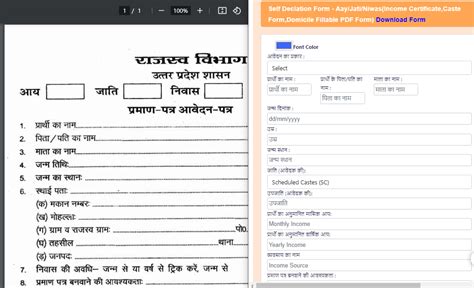 1 / 1
100%
राजस्व विभाग
उत्तर प्रदेश शासन
आय जाति निवास
प्रमाण-पत्र आवेदन-पत्र
1. प्रार्थी का नाम
2. पिता/पति का नाम
3. माता का नाम
4. जन्म तिथि:
5. जन्म का स्थान:
6. स्थाई पता:
(क) मकान नम्बर:
(ख) मोहल्ला:
(ग) ग्राम व राजस्व ग्राम: पो0
(घ) तहसील थाना
(ड) जनपद:
7. निवास की अवधि– जन्म से या वर्ष से ट्रिक करें, जन्म से
8. प्रमाण पत्र बनवाने की आवश्यकता:
Self Declation Form - Aay/Jati/Niwas(Income Certificate,Caste
Form,Domicile Fillable PDF Form) Download Form
Font Color
आवेदन का प्रकार:
Select
प्रार्थी का नाम : प्रार्थी के पिता/पति का नाम : माता का नाम :
प्रार्थी का नाम पिता का नाम माता का नाम
जन्म दिनांक :
dd/mm/yyyy
उम्र :
उम्र
जन्म स्थान :
जन्म स्थान
जाति (आवेदक की):
Scheduled Castes (SC)
उपजाति (आवेदक की):
उपजाति
प्रार्थी का अनुमानित मासिक आय:
Monthly Income
प्रार्थी का अनुमानित वार्षिक आय:
Yearly Income
व्यवसाय का नाम
Income Source
प्रमाण पत्र बनवाने की आवश्यकता: